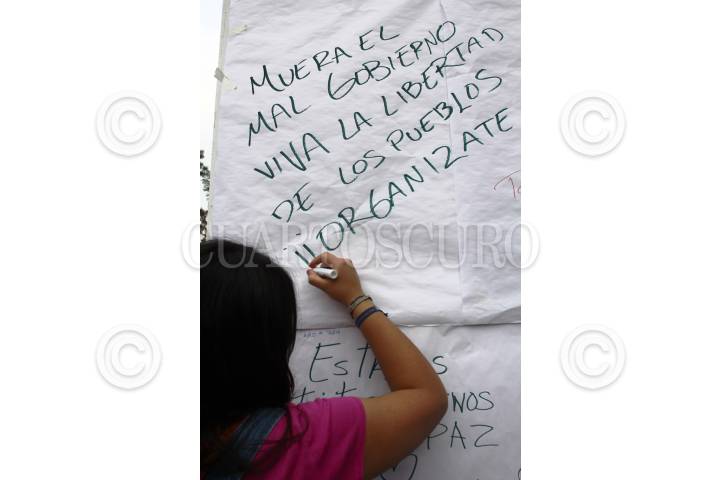 MUERA EL
MAL GOBIERNO
VIVA LA LIBERTAD
DE LOS PUEBLOS
¡¡ORGANIZATE
CUARTOSCURO
NOS
PAZ